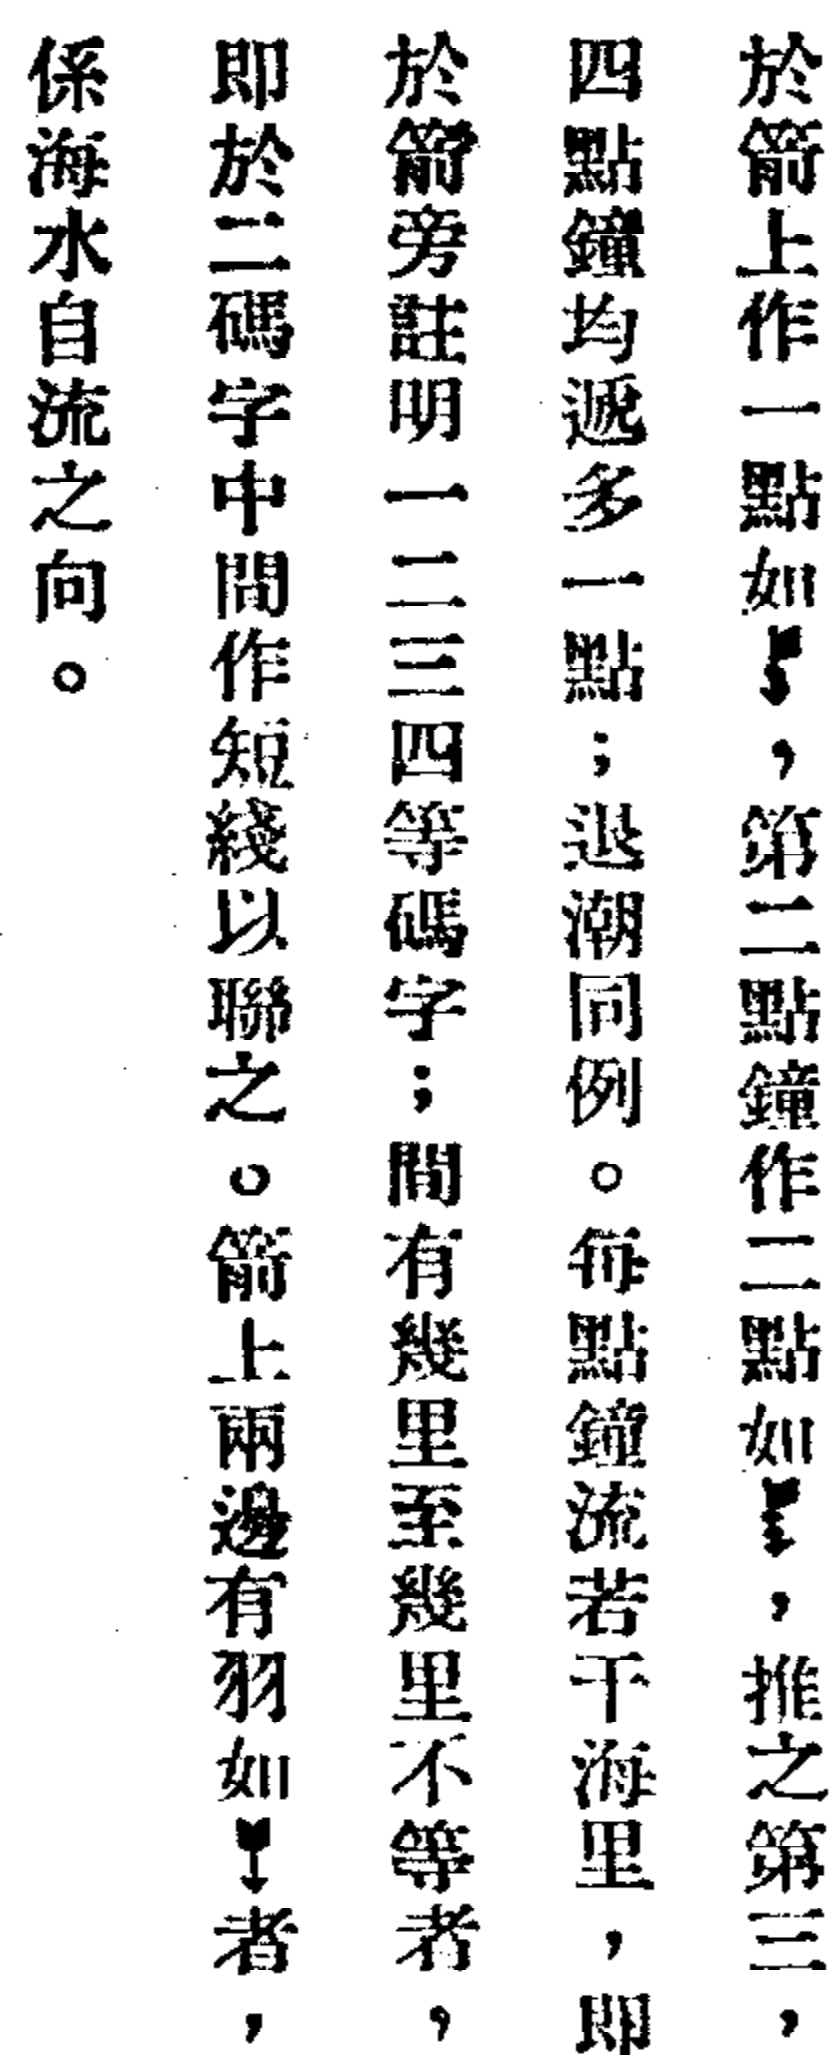 於箭上作一點如，第二點鐘作二點如，推之第三，
四點鐘均遞多一點；退潮同例。每點鐘流若干海里，即
於箭旁註明一二三四等碼字；間有幾里至幾里不等者，
即於二碼字中間作短綫以聯之。箭上兩邊有羽如者，
係海水自流之向。